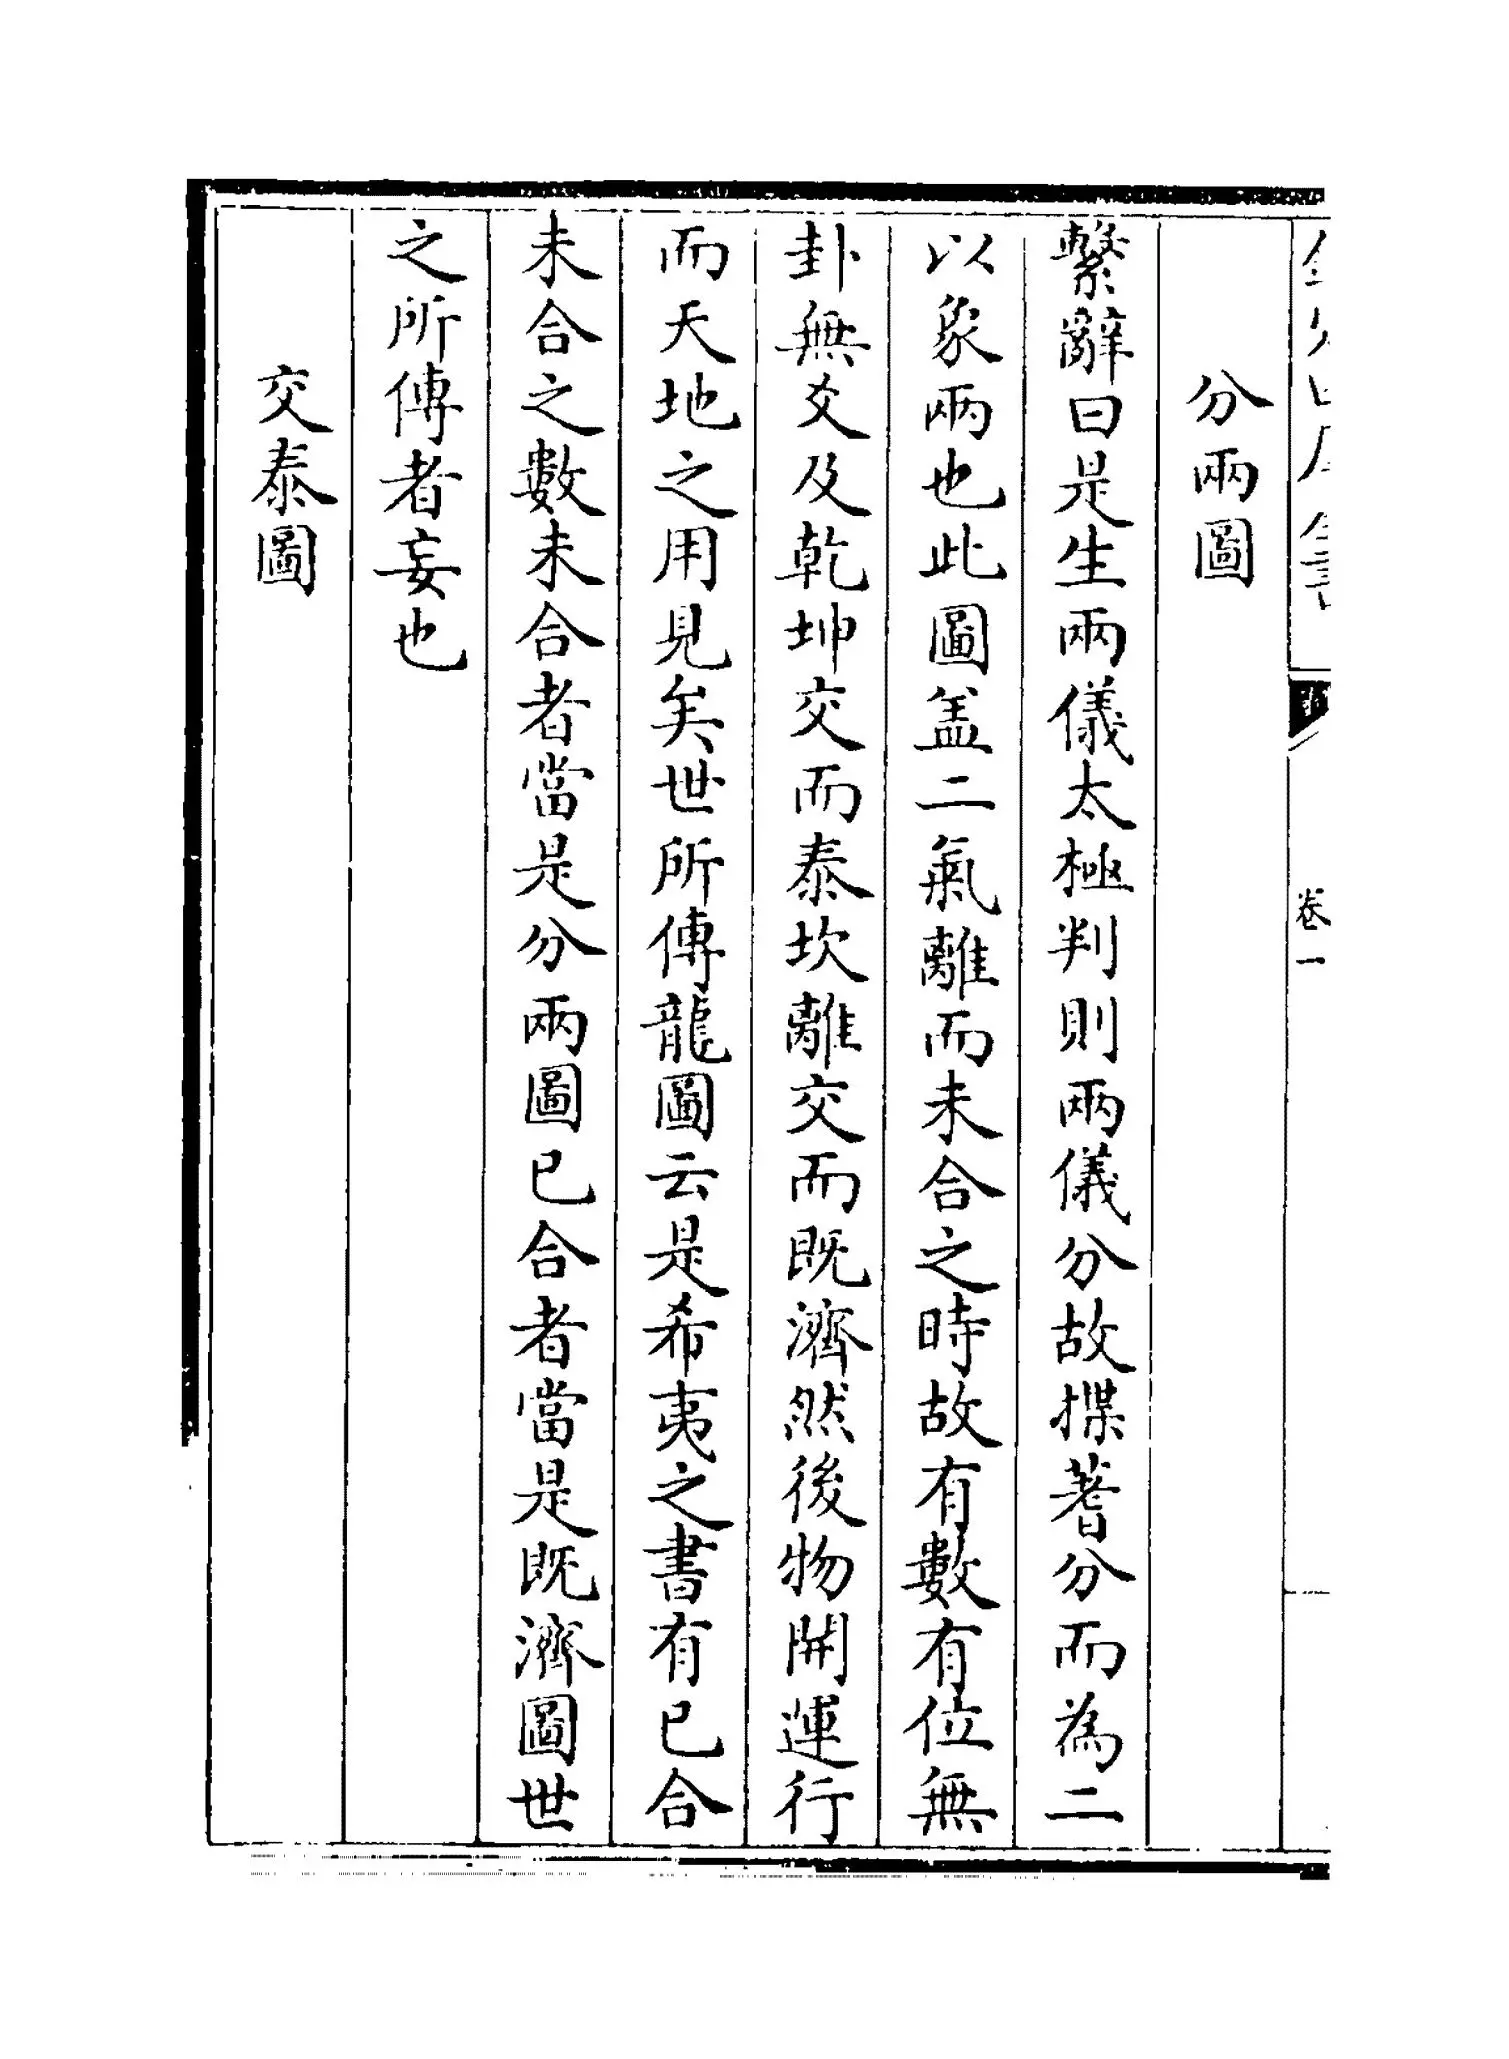 卷一
分兩圖
繫辭曰是生兩儀太極判則兩儀分故揲蓍分而為二
以象兩也此圖盖二氣離而未合之時故有數有位無
卦無爻及乾坤交而泰坎離交而既濟然後物開運行
而天地之用見矣世所傳龍圖云是希夷之書有已合
未合之數未合者當是分兩圖已合者當是既濟圖世
之所傳者妄也
交泰圖